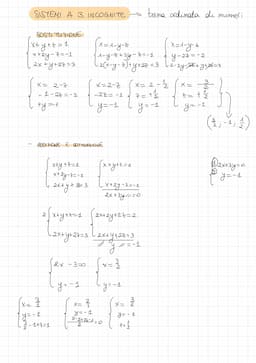 SISTEMI A 3 INCOGNITE → terna ordinata di numeri
SOSTITUZIONE
x+y+z=1
x+2y-z=-1
2x+y+2z=3
x=1-y-z
1-y-z+2y-z=-1
2(1-y-z)+y+2z=3
x=1-y-z
y-2z=-2
x=2-z
y=-1
x=2-z
-2z=-1
y=-1
x=2-1/2
z=+1/2
y=-1
x=3/2
z=+1/2
y=-1
(3/2, -1, 1/2)
x+y+z=1
x+2y-z=-1
2x+y+2z=3
x+y+z=1
x+2y-z=-1
2x+3y=0
① 2x+3y=0
② y=-1
2 x+y+z=1
2x+y+2z=3
2x+2y+2z=2
2x+y+2z=3
y=-1
2x-3=0
y=-1
x=3/2
y=-1
x=3/2
y=-1
3/2-1+z=1
x=3/2
y=-1
x=3/2
y=-1
z=1/2